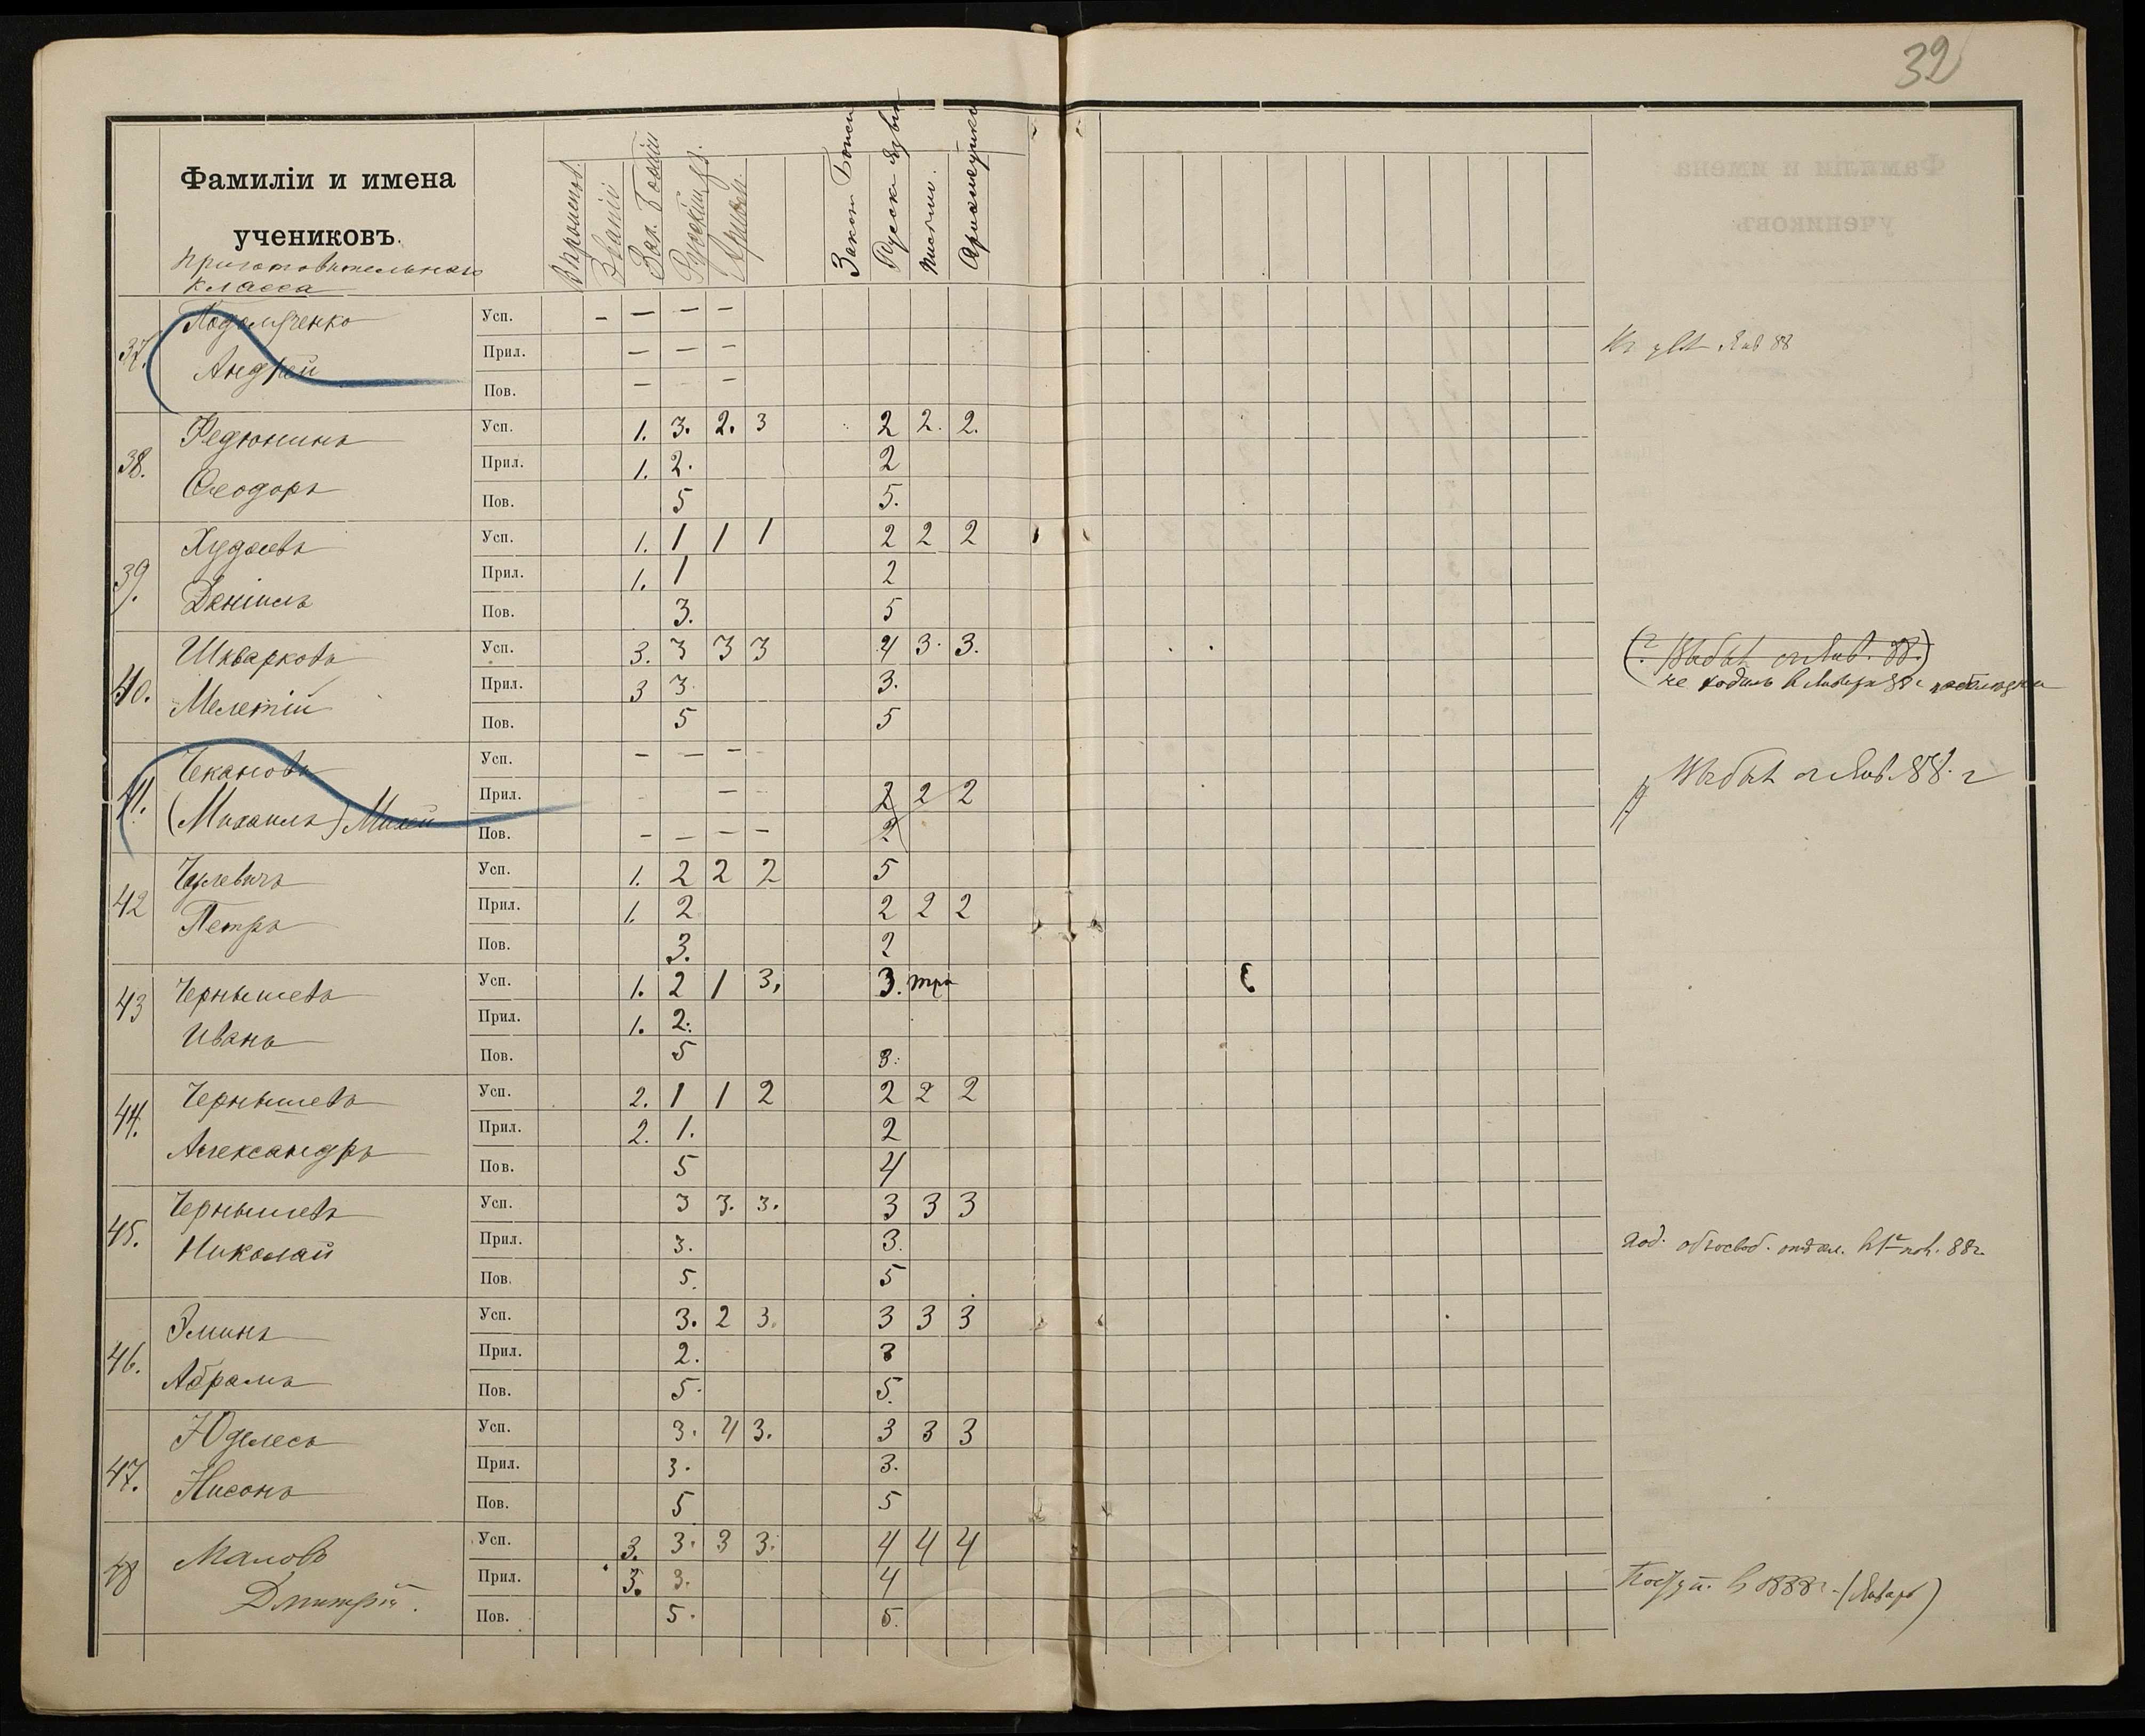 32
Фамиліи и имена
учениковъ.
приготовительнаго
класса
Вѣроисповѣд.
Званіе
Зак. Божій
Русскій яз.
Законъ Божій
Русск. Языкъ
Ариѳметика
37.
Андрей
Усп. - - - -
Прил. - - -
Пов. - -
88
38. Федюнинъ
Ѳеодоръ
Усп. 1. 3. 2. 3 2 2. 2.
Прил. 1. 2. 2
Пов. 5 5.
39. Худаевъ
Даніилъ
Усп. 1. 1 1 1 2 2 2
Прил. 1. 1 2
Пов. 3. 5
40. Шкварковъ
Мелетій
Усп. 3. 3 3 3 4 3. 3.
Прил. 3 3. 3.
Пов. 5 5
(? Выбылъ съ Янв. 88.)
не ходилъ въ Январѣ 88 г.
41. Чекановъ
(Михаилъ) Михей
Усп. - - - -
Прил. - 2 2 2
Пов. - - - - 2
Выбылъ съ Янв. 88. г
42 Петръ
Усп. 1. 2 2 2 5
Прил. 1. 2 2 2 2
Пов. 3. 2
43 Чернышевъ
Иванъ
Усп. 1. 2 1 3. 3. три
Прил. 1. 2.
Пов. 5 3.
44. Чернышевъ
Александръ
Усп. 2. 1 1 2 2 2 2
Прил. 2. 1. 2
Пов. 5 4
45. Чернышевъ
Николай
Усп. 3 3. 3. 3 3 3
Прил. 3. 3.
Пов. 5. 5
88г.
46. Эминъ
Абрамъ
Усп. 3. 2 3. 3 3 3
Прил. 2. 3
Пов. 5. 5.
47. Юделесъ
Нисонъ
Усп. 3. 4 3. 3 3 3
Прил. 3. 3.
Пов. 5 5
48 Маловъ
Дмитрій.
Усп. 3. 3. 3 3. 4 4 4
Прил. 3. 3. 4
Пов. 5. 5.
Поступ. въ 1888 г. (Январь)